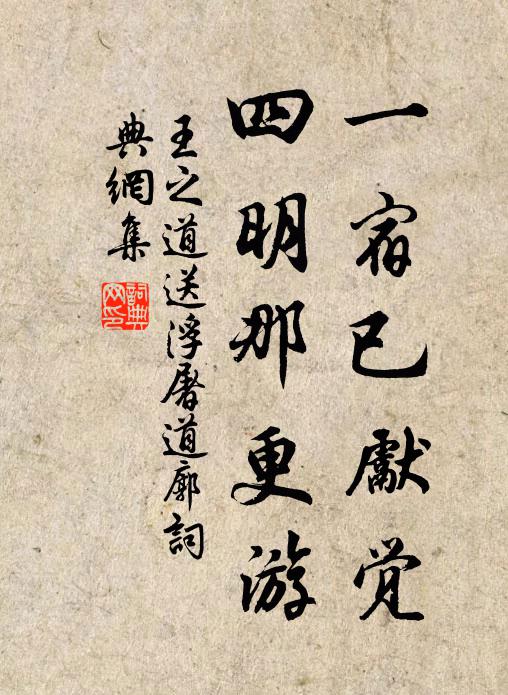 一宿已獻覚
四明那更游
王之道送浮屠道廓詞
典網集
詞典網印